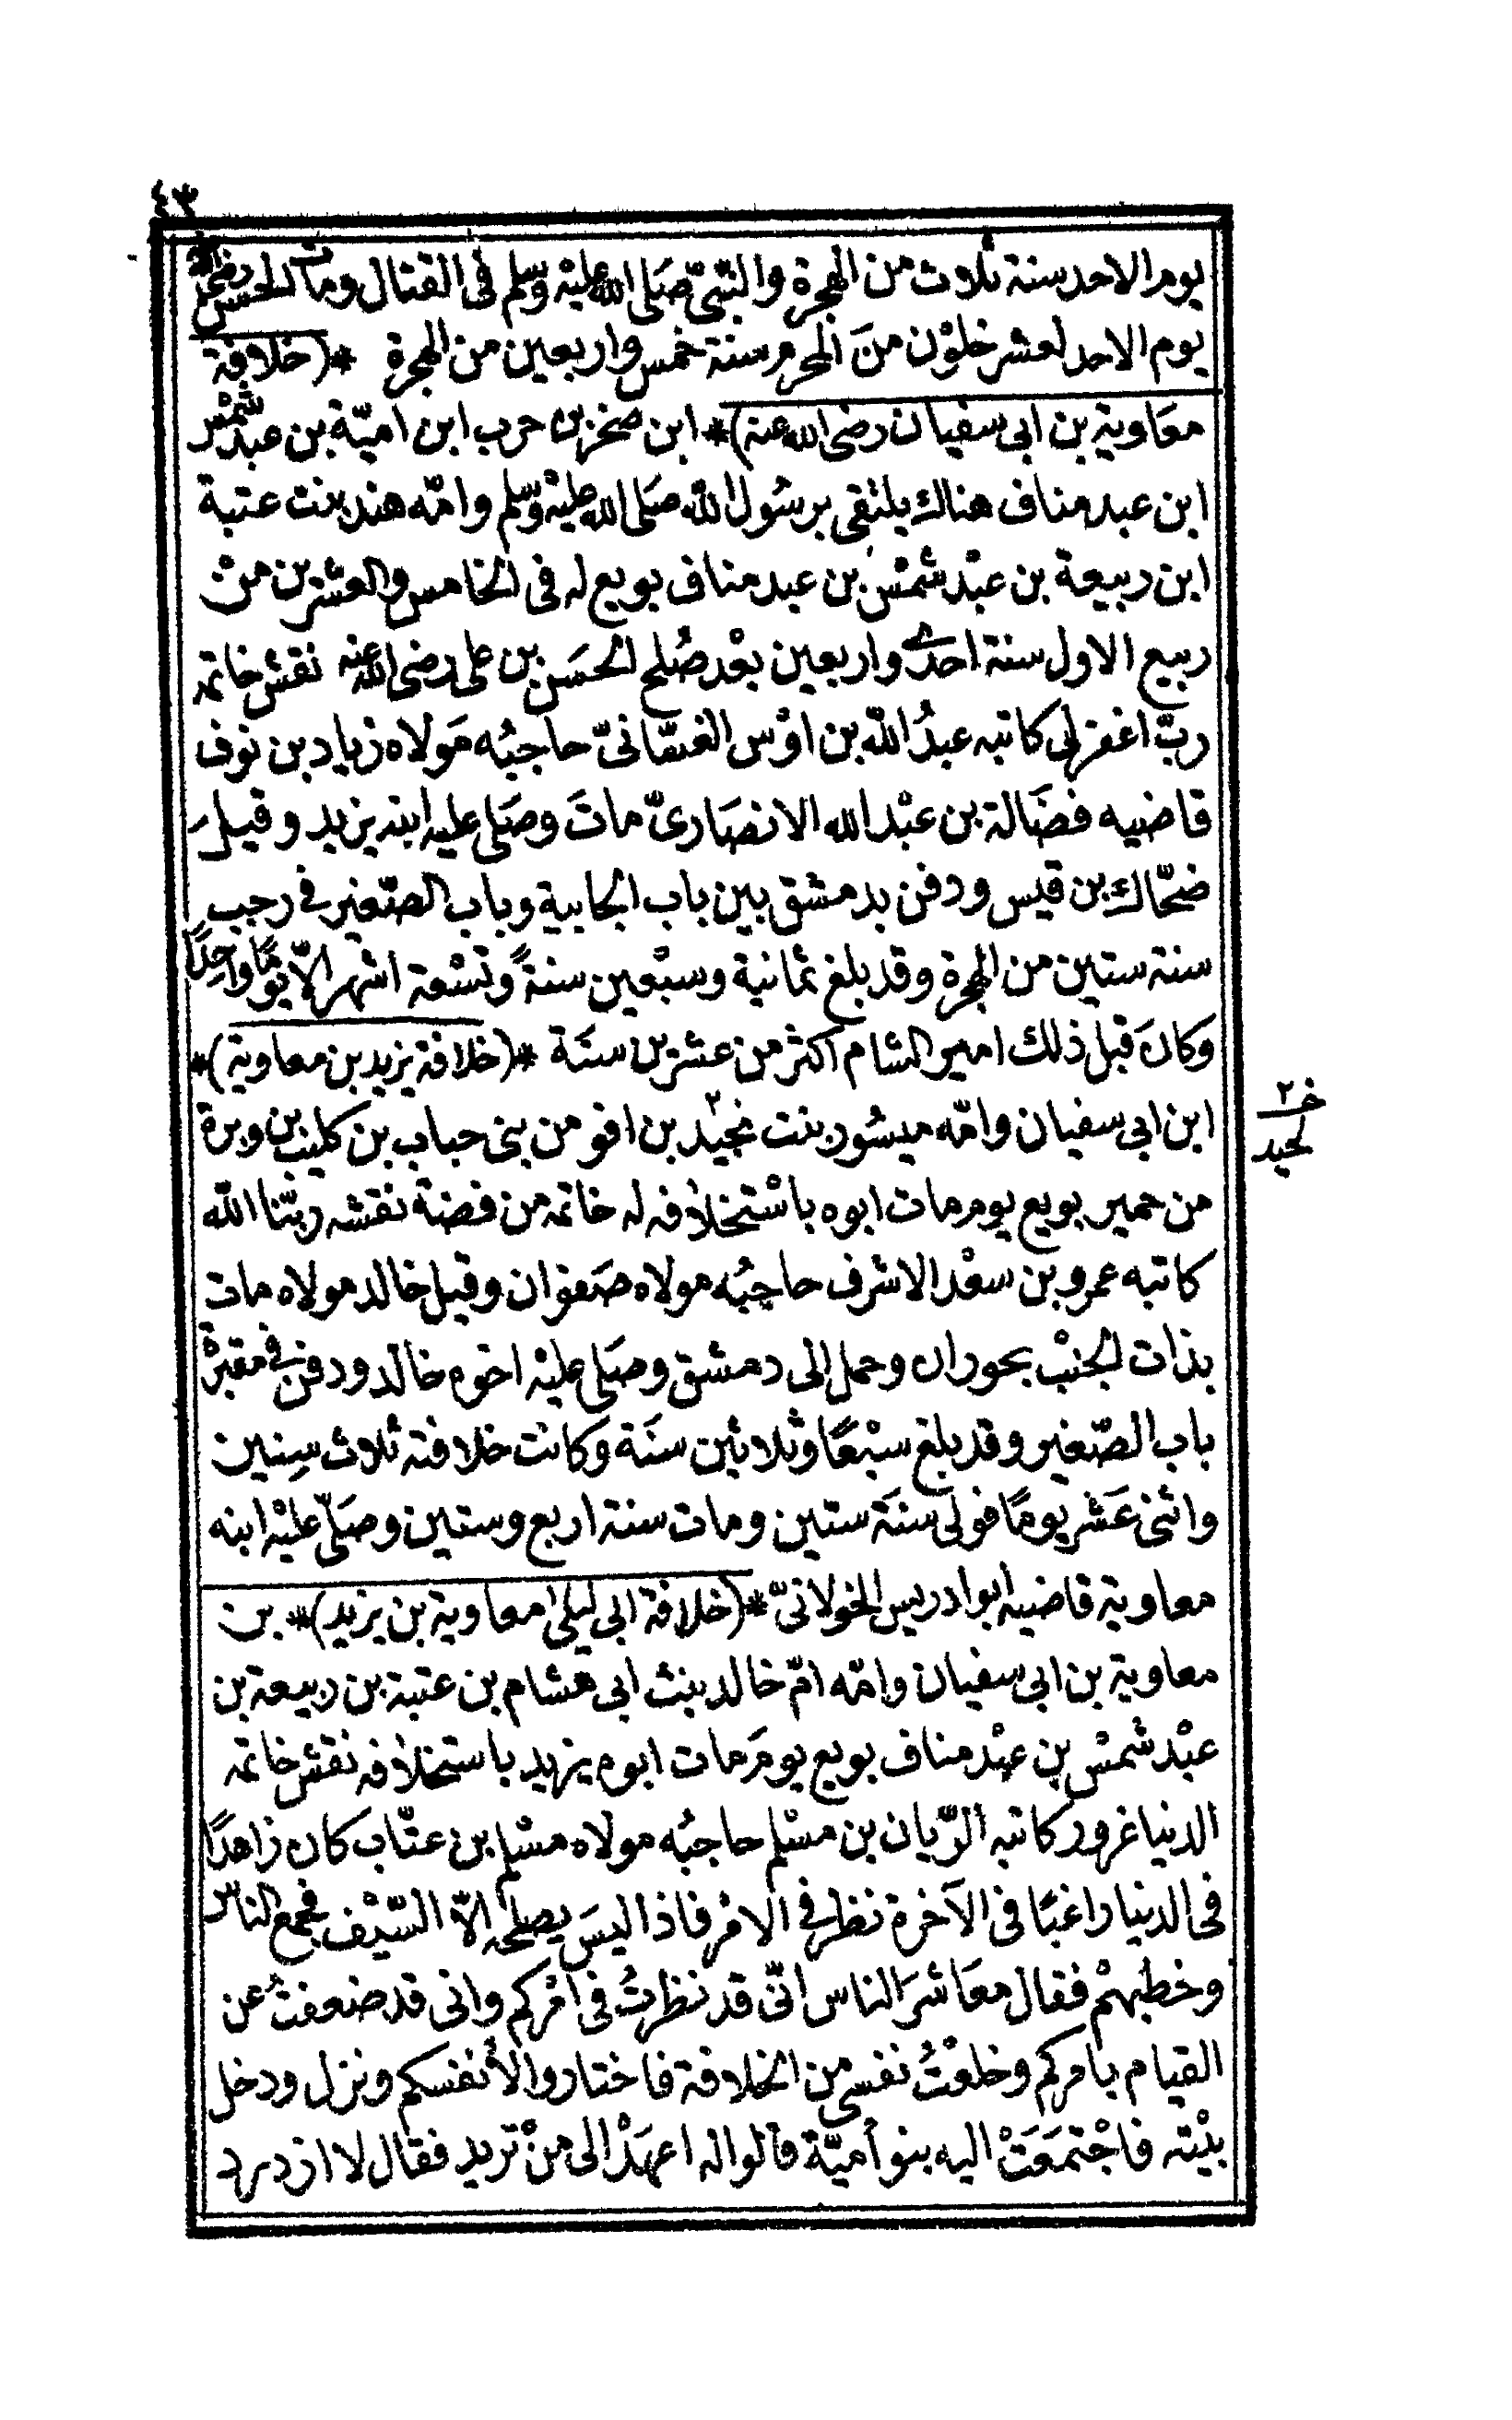 ٤٣
يوم الاحد سنة ثلاث من الهجرة والنّبىّ صَلى الله عليْه وسّلم فى القتال ومات الحسن رضى الله
يوم الاحد لعشر خلوْن منَ المحرم سنة خمس واربعين من الهجرة *(خلافة
معَاوية بن ابى سفيان رضى الله عنه)* ابن صخر بن حرب ابن اميّة بن عبد شمْس
ابن عبد مناف هناك يلتقى برسُول الله صَلى الله عليه وسّلم وامّه هند بنت عتبة
ابن ربيعة بن عبْد شمْس بن عبد مناف بويع له فى الخامس والعشرين منْ
ربيع الاول سنة احدى واربعين بعْد صُلح الحسَن بن على رضى الله عنه نقش خاتمه
ربّ اغفر لى كاتبه عبدُ الله بن اوْس الغسّانىّ حاجبُه مَولاه زياد بن نوف
قاضيه فضَالة بن عبْد الله الانصَارىّ ماتَ وصَلى عليه ابنه يزيد وقيلَ
ضحّاك بن قيس ودفن بدمشق بين باب الجابية وباب الصّغير فى رجب
سنة ستين من الهجرة وقد بلغ ثمانية وسبْعين سنةً وتسْعة اشهر الاّ يومًا واحِدًا
وَكانَ قبل ذلك امير الشام اكثر من عشرين سنَة *(خلافة يزيد بن معاوية)*
ابن ابى سفيان وامّه ميسُور بنت نجيْد٢ بن افو من بنى حباب بن كليْب بن وبرة
خ ٢
لحيد
من حمير بويع يوم مات ابوه باسْتخلافه له خاتمه من فضة نقشه ربّنا الله
كاتبه عمرو بن سعْد الاشرف حاجبُه مولاه صَفوان وقيل خالد مولاه مات
بذات الجنبْ بحوران وحمل الى دمشق وصَلى عليْه اخوه خالد ودفن فى مقبرة
باب الصّغير وقد بلغ سبْعًا وثلاثين سنَة وكانت خلافته ثلاث سِنين
واثنى عَشر يومًا فولى سنَة ستين ومات سنة اربع وستين وصَلّى عليْه ابنه
معاوية قاضيه ابو ادريس الخولانىّ *(خلافة ابى ليلى معاوية بن يزيد)* بن
معاوية بن ابى سفيان وامّه امّ خالد بنت ابى هشام بن عتبة بن ربيعة بن
عبْد شمْس بن عبْد مناف بويع يومَ مات ابوه يزيد باستخلافه نقش خاتمه
الدنيا غرور كاتبه الرّيان بن مسْلم حاجبُه مولاه مسْلم بن عتّاب كان زاهدًا
فى الدنيا راغبًا فى الآخرة نظر فى الامْر فاذا ليسَ يصلحه الاّ السّيْف فجمع الناسَ
وخطبهمْ فقال معَاشرَ الناس انّى قد نظرتُ فى امْركم وانى قد ضعفتُ عن
القيام بامركم وخلعْتُ نفسى من الخلافة فاختاروا لأنفسكم ونزل ودخل
بيْته فاجْتمَعَتْ اليه بنو أميّة قالوا له اعهَدْ الى منْ تريد فقال لا ازدرد